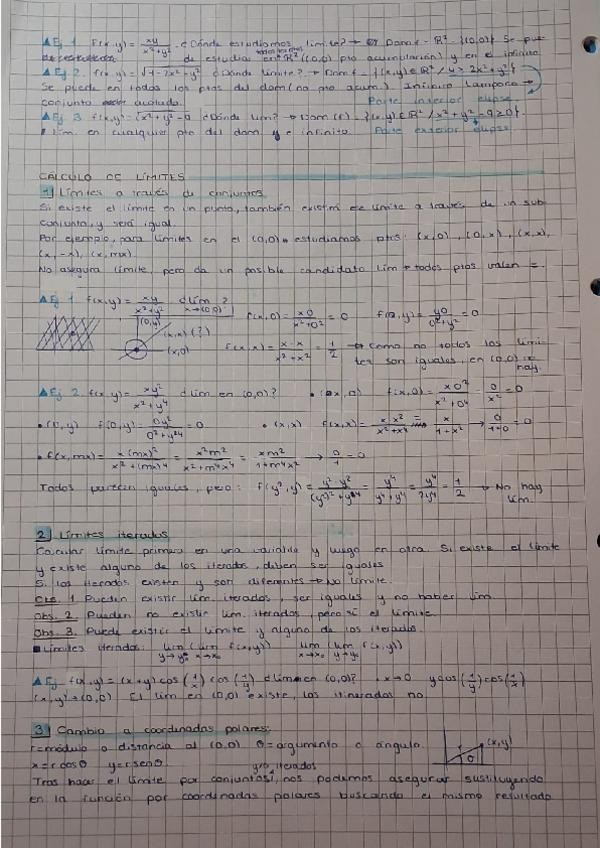 ▲Ej 1. f(x,y) = xy/(x²+y²). ¿Dónde estudiamos límite? → Dom f = R² - {(0,0)} Se pue-
de estudiar en todos los R² ((0,0) pto acumulación) y en el infinito
▲Ej 2. f(x,y) = √(4-2x²+y²) ¿Dónde límite? → Dom f = {(x,y)∈R² / 4 ≥ 2x²+y²}
Se puede en todos los ptos del dom (no pto acum.). Infinito tampoco →
conjunto acotado. Parte interior elipse
▲Ej 3. f(x,y) = √(x²+y²-9) ¿Dónde lim? → Dom(f) = {(x,y)∈R² / x²+y²-9≥0}
lim. en cualquier pto del dom y e infinito. Parte exterior elipse
CÁLCULO DE LÍMITES
1 Límites a través de conjuntos
Si existe el límite en un punto, también existirá ese límite a través de un sub-
conjunto, y será igual.
Por ejemplo, para límites en el (0,0) estudiamos ptos: (x,0), (0,x), (x,x),
(x,-x), (x,mx).
No asegura límite, pero da un posible candidato lim → todos ptos valen =.
▲Ej 1 f(x,y) = xy/(x²+y²) ¿lim x→(0,0)? f(x,0) = x·0/(x²+0²) = 0 f(0,y) = y·0/(0²+y²) = 0
(0,y)
(x,x) (?)
(x,0)
f(x,x) = x·x/(x²+x²) = 1/2 → Como no todos los lími-
tes son iguales, en (0,0) no
hay.
▲Ej 2. f(x,y) = xy²/(x²+y⁴) ¿lim en (0,0)? • (x,0) f(x,0) = x·0²/(x²+0⁴) = 0/x² = 0
• (0,y) f(0,y) = 0y²/(0²+y⁴) = 0 • (x,x) f(x,x) = x·x²/(x²+x⁴) = x/(1+x²) → 0/(1+0) = 0
• f(x,mx) = x(mx)²/(x²+(mx)⁴) = x³m²/(x²+m⁴x⁴) = xm²/(1+m⁴x²) → 0/1 = 0
Todos parecen iguales, pero: f(y²,y) = y²·y²/((y²)²+y⁴) = y⁴/(y⁴+y⁴) = y⁴/2y⁴ = 1/2 → No hay
lim.
2 Límites iterados
Calcular límite primero en una variable y luego en otra. Si existe el límite
y existe alguno de los iterados, deben ser iguales
Si los iterados existen y son diferentes → No límite.
Obs. 1 Pueden existir lim. iterados, ser iguales y no haber lim
Obs. 2. Pueden no existir lim. iterados, pero sí el límite.
Obs. 3. Puede existir el límite y alguno de los iterados.
▪ Límites iterados: lim y→y₀ (lim x→x₀ f(x,y)) lim x→x₀ (lim y→y₀ f(x,y))
▲Ej f(x,y) = (x+y) cos(1/x) cos(1/y) ¿lim en (0,0)? x→0 ycos(1/y)cos(1/x)
(x,y)→(0,0) El lim en (0,0) existe, los iterados no
3 Cambio a coordenadas polares:
r=módulo o distancia al (0,0) θ=argumento o ángulo.
(x,y)
θ
x=r cosθ y=r senθ
Tras hacer el límite por conjuntos y/o iterados, nos podemos asegurar sustituyendo
en la función por coordenadas polares buscando el mismo resultado